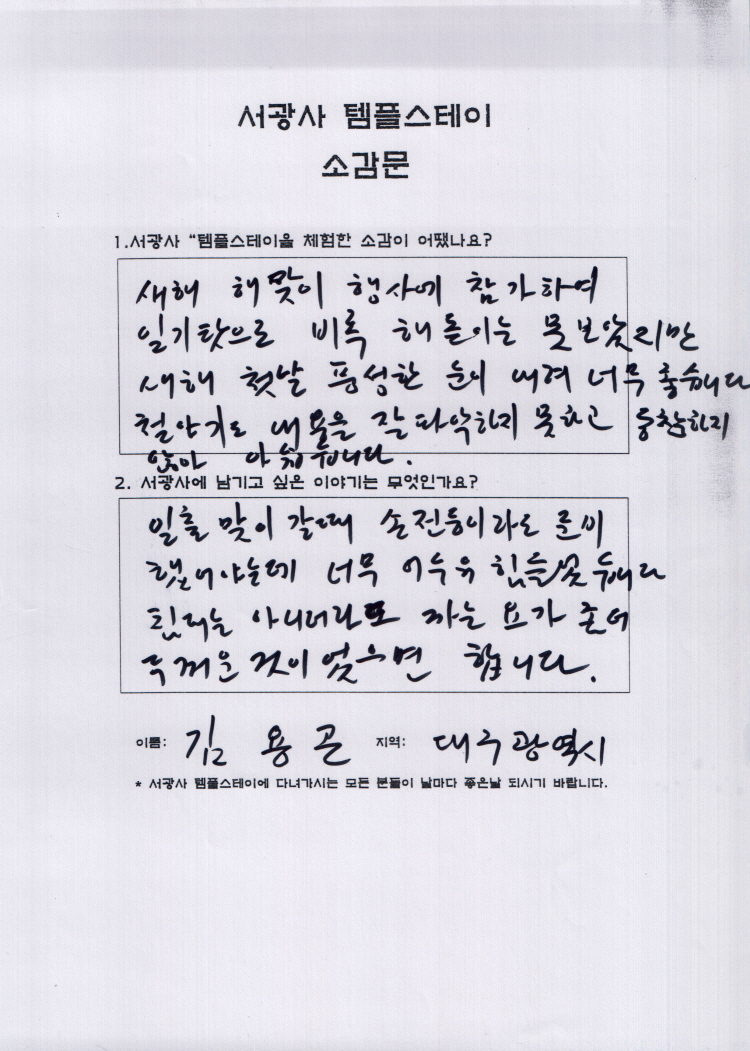 서광사 템플스테이
소감문
1.서광사 "템플스테이을 체험한 소감이 어땠나요?
새해 해맞이 행사에 참가하여
일기탓으로 비록 해돋이는 못보았지만
새해 첫날 풍성한 눈이 내려 너무 좋습니다
내용을 잘 파악하지 못하고 동참하지
않아 아쉽습니다.
2. 서광사에 남기고 싶은 이야기는 무엇인가요?
일출 맞이 갈때 손전등이라도 준비
했어야는데 너무 힘들었습니다
침대는 아니더라도 까는 요가 좀더
두꺼운 것이 었으면 합니다.
이름: 김용곤 지역: 대구광역시
* 서광사 템플스테이에 다녀가시는 모든 분들이 날마다 좋은날 되시기 바랍니다.